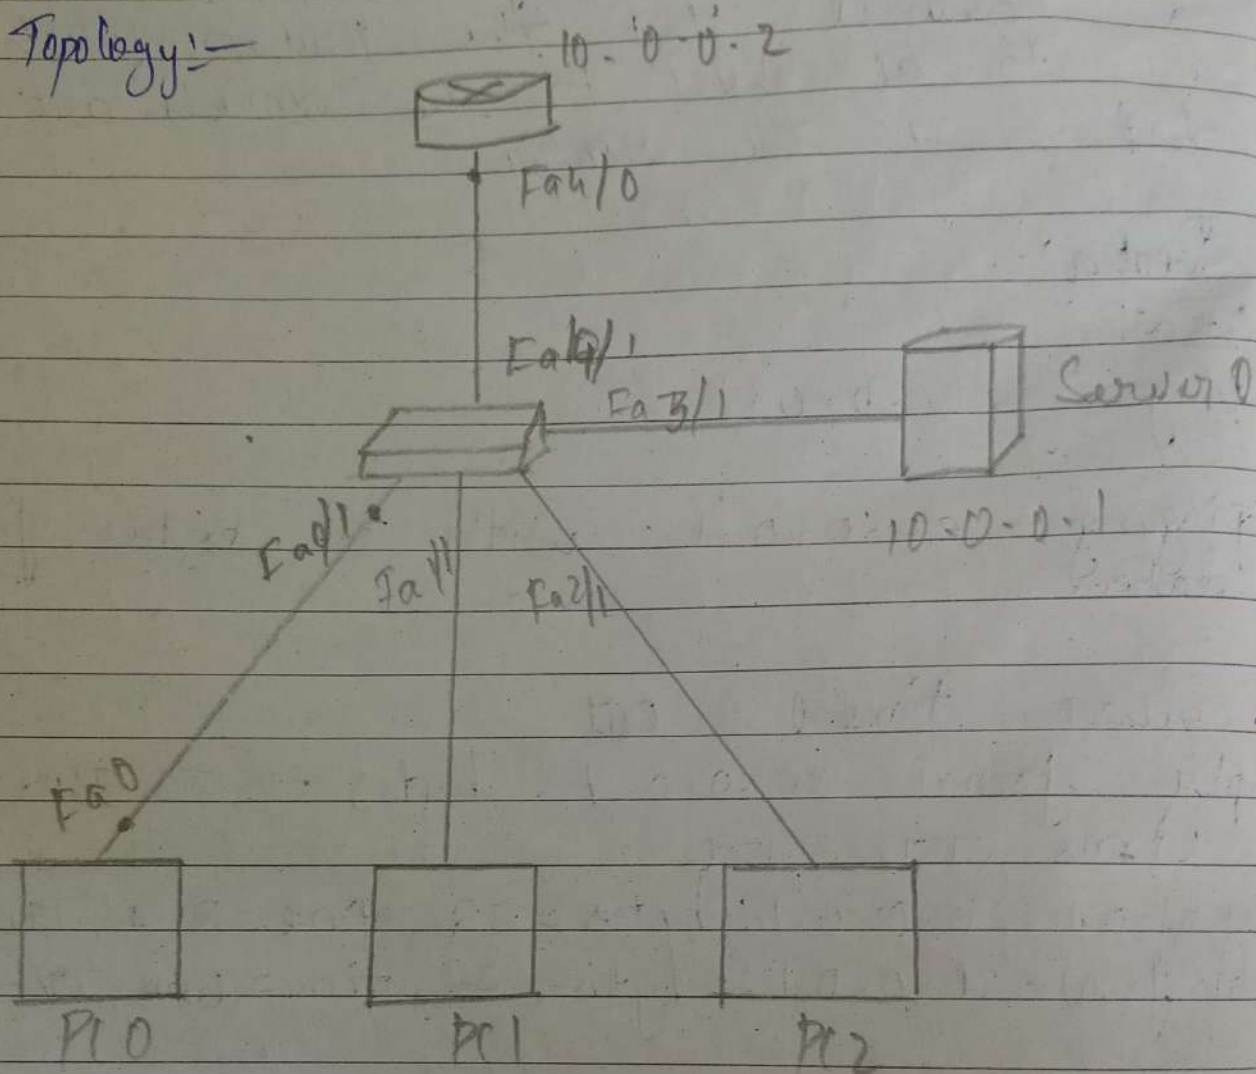 Topology:-
10.0.0.2
Fa4/0
Fa4/1
Fa3/1
Server 0
10.0.0.1
Fa0/1
Fa1/1
Fa2/1
Fa0
PC0
PC1
PC2